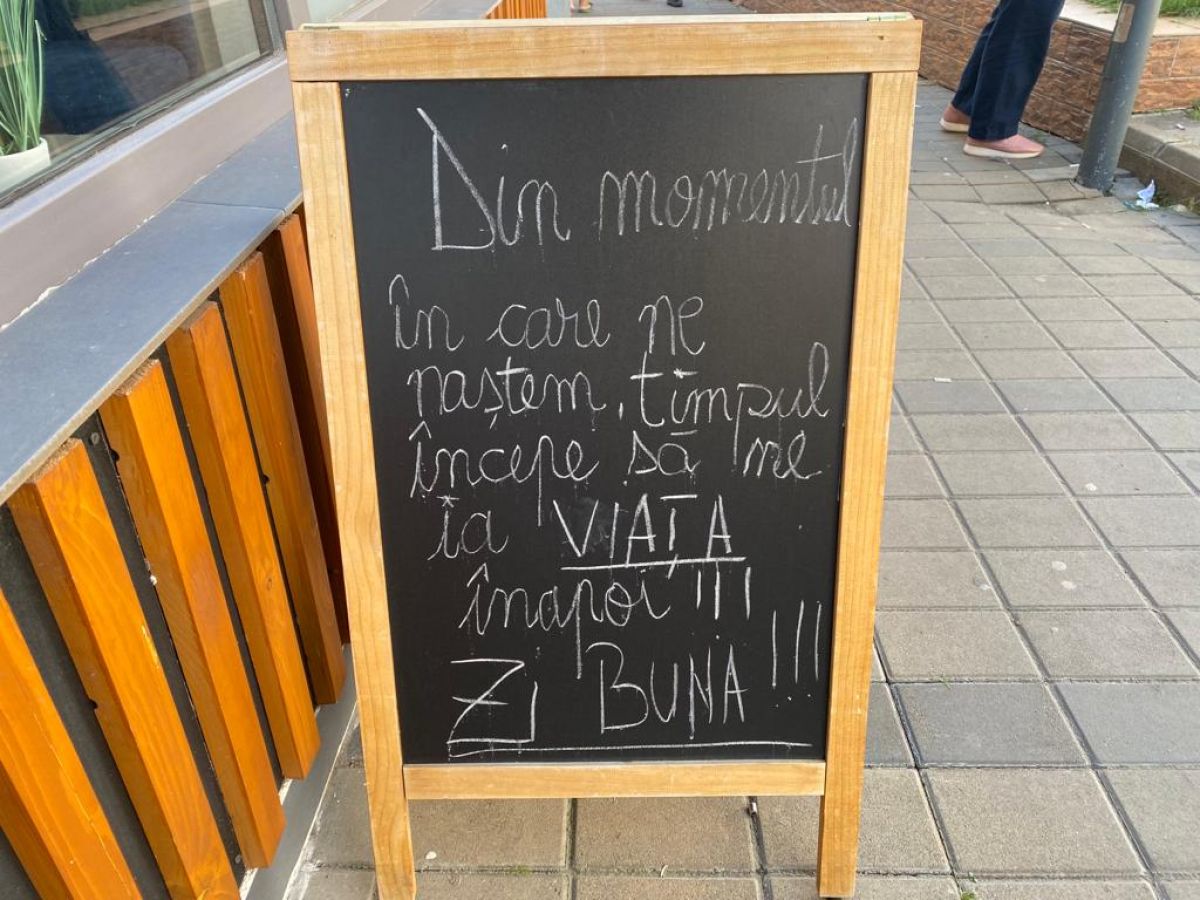 Din momentul
în care ne
naștem, timpul
începe să ne
ia VIAȚA
înapoi !!!
ZI BUNA !!!